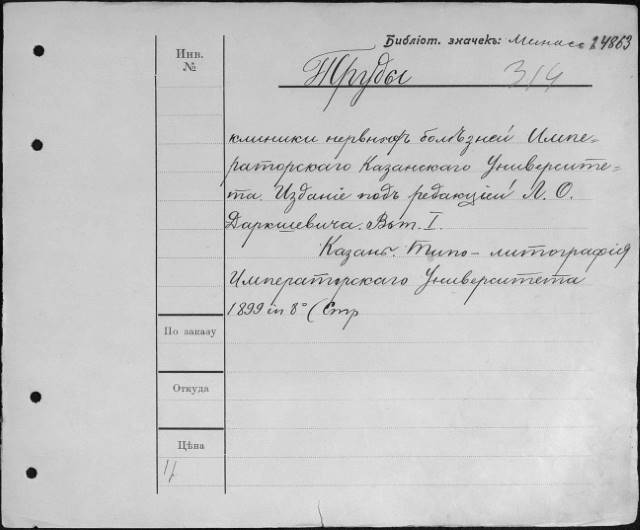 Библіот. значекъ: 24863
Инв.
№
Труды 314
клиники нервныхъ болѣзней Импе-
раторскаго Казанскаго Университе-
та. Изданіе подъ редакціей Л. О.
Даркшевича. Вып. I.
Казань. Типо-литографія
Императорскаго Университета
1899 in 8° (Стр
По заказу
Откуда
Цѣна